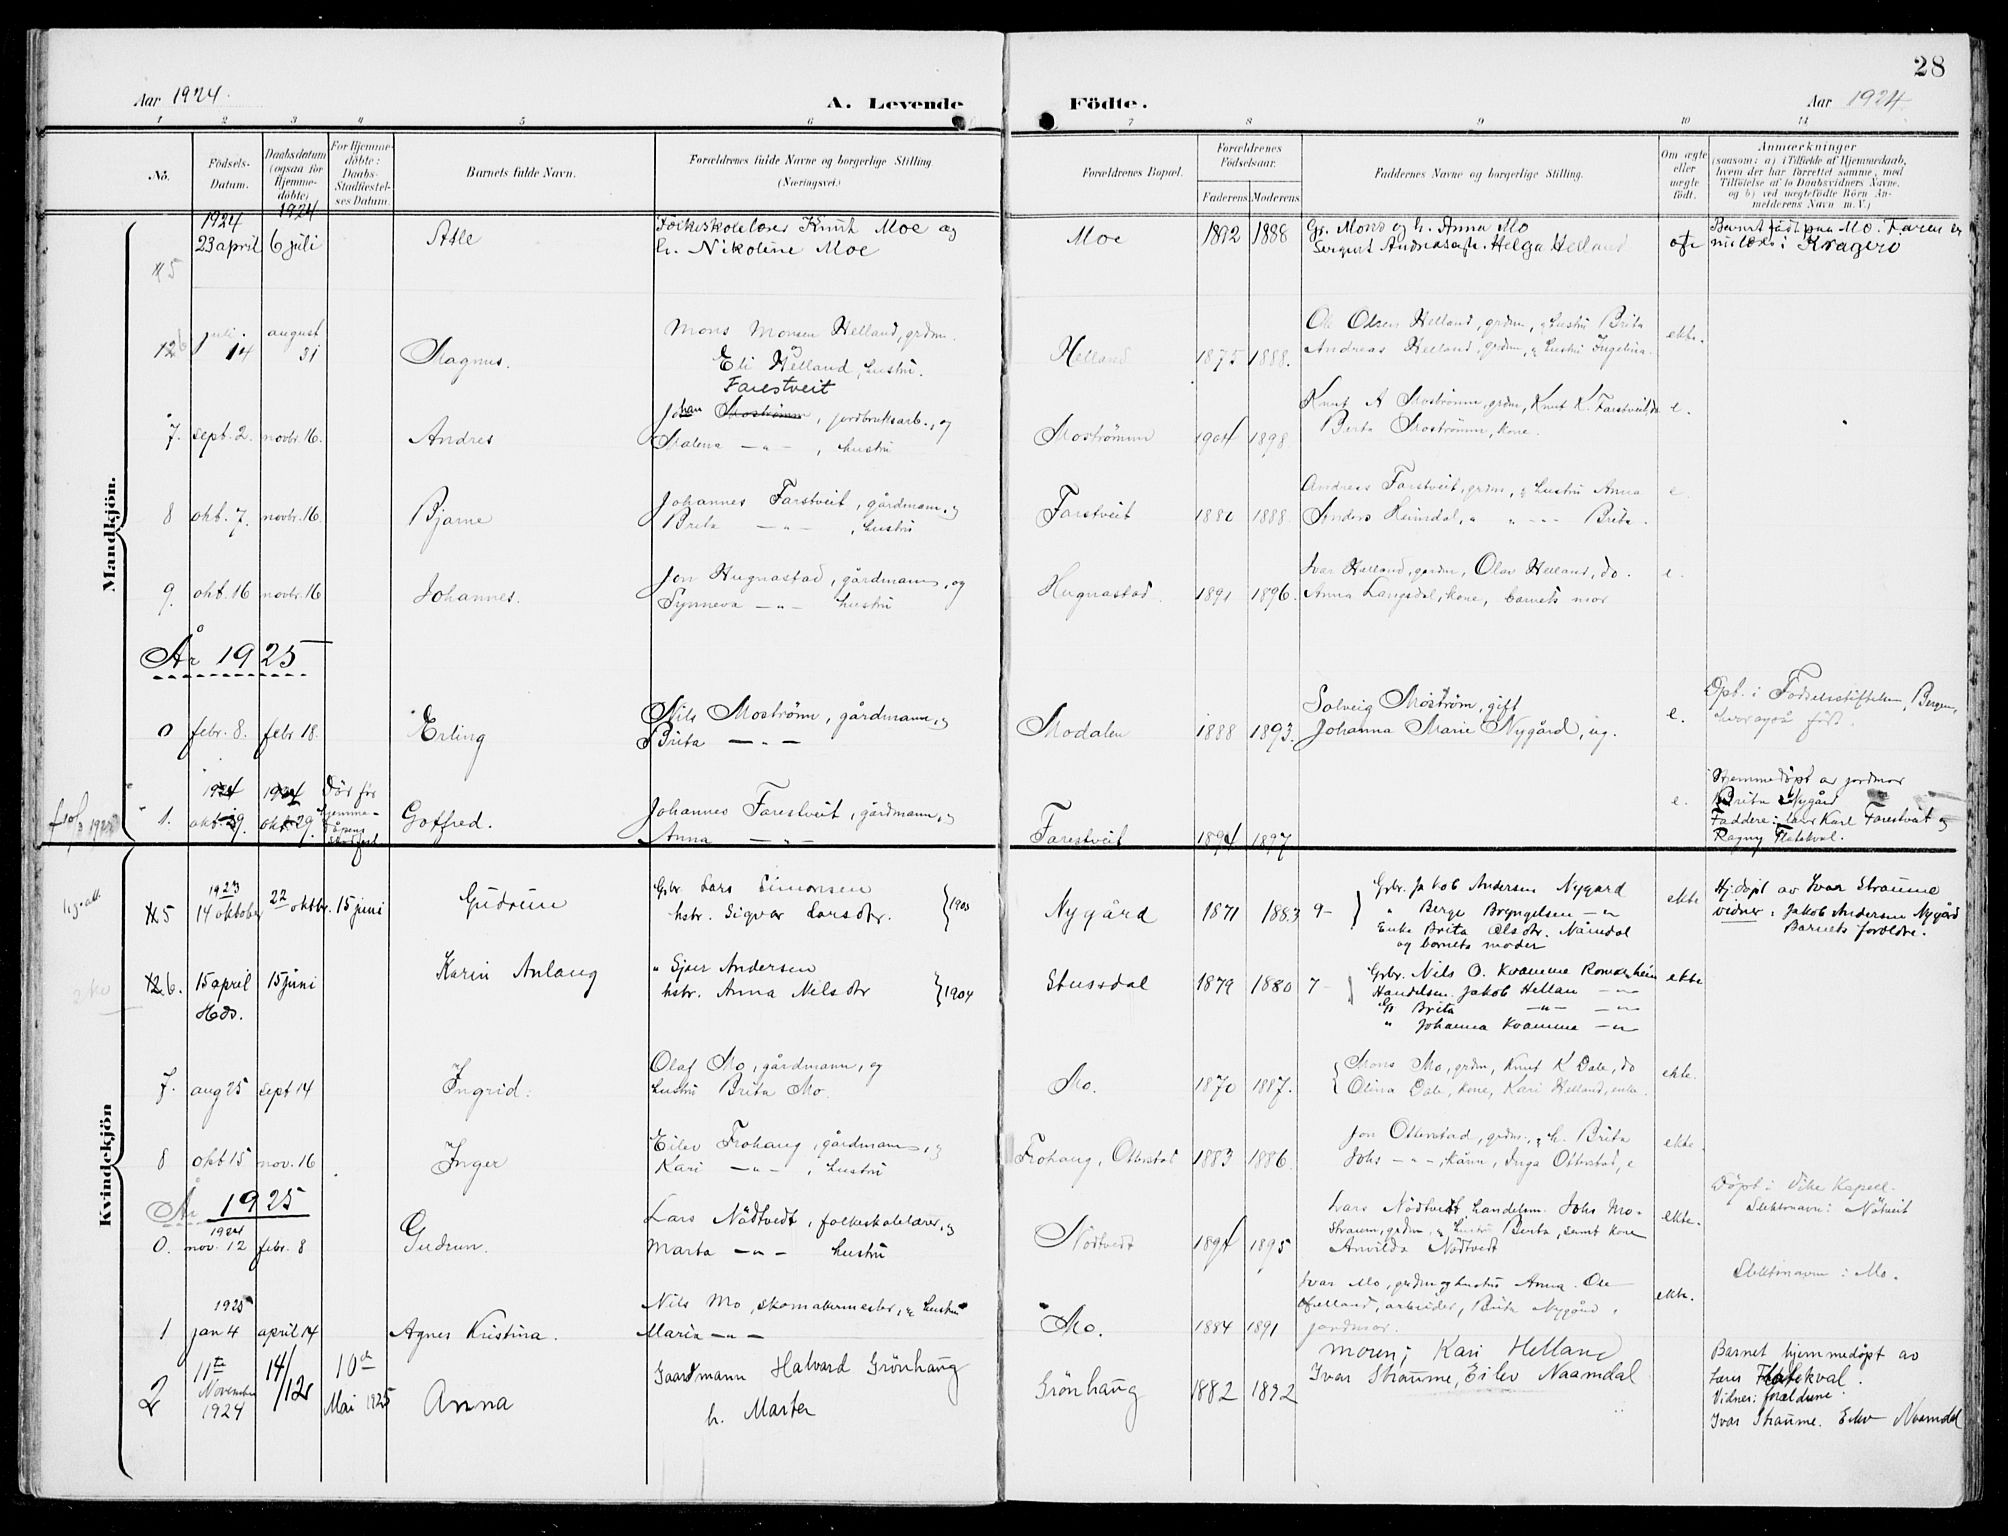 28
Aar 1924.
A. Levende
Födte.
Aar 1924.
1 2 3 4 5 6 7 8 9 10 11
No.
Födsels-Datum.
Daabsdatum (ogsaa for Hjemmedöbte)
For Hjemmedöbte: Daabs-Stadfæstelses Datum.
Barnets fulde Navn.
Forældrenes fulde Navne og borgerlige Stilling. (Næringsvei.)
Forældrenes Bopæl.
Forældrenes Födselsaar.
Faderens Moderens
Faddernes Navne og borgerlige Stilling.
Om ægte eller uægte födt.
Anmærkninger
(saasom: a) i Tilfælde af Hjemmedaab, hvem der har forrettet samme, med Tilföielse af to Daabsvidners Navne, og b) ved uægtefödte Börn Anmelderens Navn m. V.)
Mandkjön.
5 1924 23 april 1924 6 juli Atle
Folkeskolelærer Knut Moe og
h. Nikoline Moe
Moe 1892 1888
Gr. Mons og h. Anna Mo
Sergent Andreas og h. Helga Helland
Barnet født paa Mo. Faren er
nu lærer i Kragerø
6 juli 14 august 31 Magnus.
Mons Monsen Helland, grdm.
og
Eli Helland, hustru.
Helland 1875 1888.
Ole Olsen Helland, grdm, og hustru Brita
Andreas Helland, grdm, og hustru Ingelina.
ekte.
7. sept. 2. novbr. 16. Andres
Farestveit
Johan Moströmm, jordbruksarb., og
Malena — " — , hustru
Moströmm 1904 1898
Knut A Moströmm, grdm, Knut K. Farstveit, do
Berta Moströmm, kone.
e.
8 okt. 7. novbr. 16. Bjarne
Johannes Farstveit, gårdmann, og
Brita — " — , hustru
Farstveit 1888.
Andreas Farstveit, grdm, og hustru Anna
Anders Heimdal, " " — Brita.
e
9. okt. 16 novbr. 16 Johannes.
Jon Hugnastad, gårdmann, og
Synneva — " — hustru
Hugnastad. 1891 1896.
Ivar Helland, grdm, Olav Helland, do.
Anna Langedal, kone, barnets mor
e.
År 1925
0 febr. 8. febr 18. Erling
Nils Moström, gårdmann, og
Brita — " —
Modalen 1888 1893.
Solveig Moström, gift
Johanna Marie Nygård, ug.
e.
Döpt. i Fødselsstiftelsen, Bergen,
hvor også födt.
1. 1924 okt. 29. 1924 okt 29. Död för hjemmedåpens stadfest. Gotfred.
Johannes Farestveit, gårdmann, og
Anna — " —
Farestveit 1894 1897
e.
Hjemmedöpt av jordmor
Brita Nygård
Faddere: lærer Karl Farestveit og
Ragny Flatekval.
Kvindekjön
5 1923 14 oktober 22 oktbr. 15 juni Gudrun
Gbr. Lars Simonsen
hstr. Sigvor Larsdtr. 1903
Nygård 1871 1883 9-
Grbr. Jakob Andersen Nygard
" Berge Bryngelsen — " —
Enke Brita Olsdtr. Nåmdal
og barnets moder
ekte
Hj.döpt av Ivar Straume
vidner: Jakob Andersen Nygård
Barnets foreldre.
6. 15 april 15 juni Karin Aslaug
" Sjur Andersen
hstr. Anna Nilsdtr 1904
1879 1880 7-
Grbr. Nils O. Kvamme Romarheim
Handelsm. Jakob Hellan — " —
Brita — " —
" Johanna Kvamme — " —
ekte
7. aug 25 sept 14 Ingrid.
Olaf Mo, gårdmann, og
hustru Brita Mo.
Mo. 1870 1887.
Mons Mo, grdm, Knut K Dale, do
Olina Dale, kone, Kari Helland, enke.
ekte.
8 okt 15 nov. 16 Inger
Eilev Frohaug, gårdmann, og
Kari — " — , hustru
Frohaug, Otterstad 1883 1886.
Jon Otterstad, grdm., og h. Brita
Johs — " —, Inga Otterstad, e
ekte.
År 1925
0. 1924 nov. 12 febr. 8 Gudrun.
Lars Nödtvedt, folkeskolelærer, og
Marta — " — hustru
Nödtvedt 1894 1895
Lars Nödtvedt handelsm. Johs Mostraum, grdm, og hustru Berta, samt kone
Arnilda Nödtvedt
ekte.
Döpt i Vike Kapell.
Slektsnavn: Nötveit
1 1925 jan 4 april 14 Agnes Kristina.
Nils Mo, skomakermester, og hustru
Maria — " —
Mo. 1884 1891
Ivar Mo, grdm og hustru Anna. Ole
Helland, arbeider, Brita Nygård,
jordmor.
ekte.
Slektsnavn: Mo.
2 11te November 1924 14/12 10de Mai 1925 Anna
Gaardmann Halvard Grönhaug
h. Marta
Grönhaug 1882 1892
moren; Kari Helland
Ivar Straume, Eilev Naamdal
Barnet hjemmedöpt av
Lærer Flatekval.
Vidner: foreldrene
Ivar Straume. Eilev Naamdal